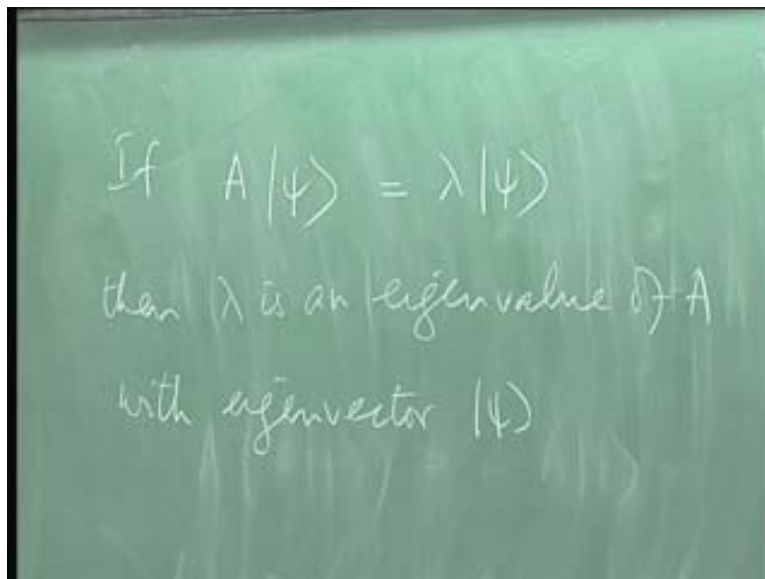 If A|ψ⟩ = λ|ψ⟩
then λ is an eigenvalue of A
with eigenvector |ψ⟩